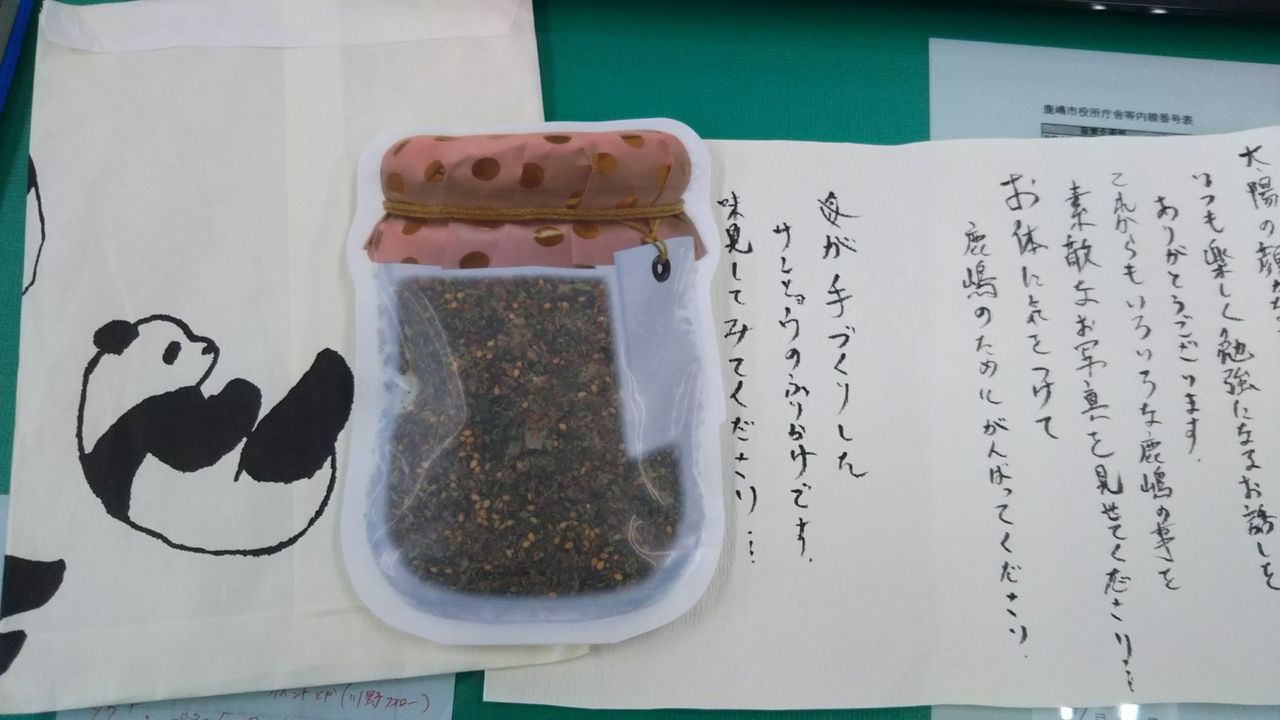 鹿嶋市役所庁舎等内線番号表
太陽の顔
いつも楽しく勉強になるお話しを
ありがとうございます.
これからもいろいろな鹿嶋の事を
素敵なお写真を見せてください…
お体に気をつけて
鹿嶋のためにがんばってください.
母が手づくりした
サンショウのふりかけです.
味見してみてください…
(川野フォロー)